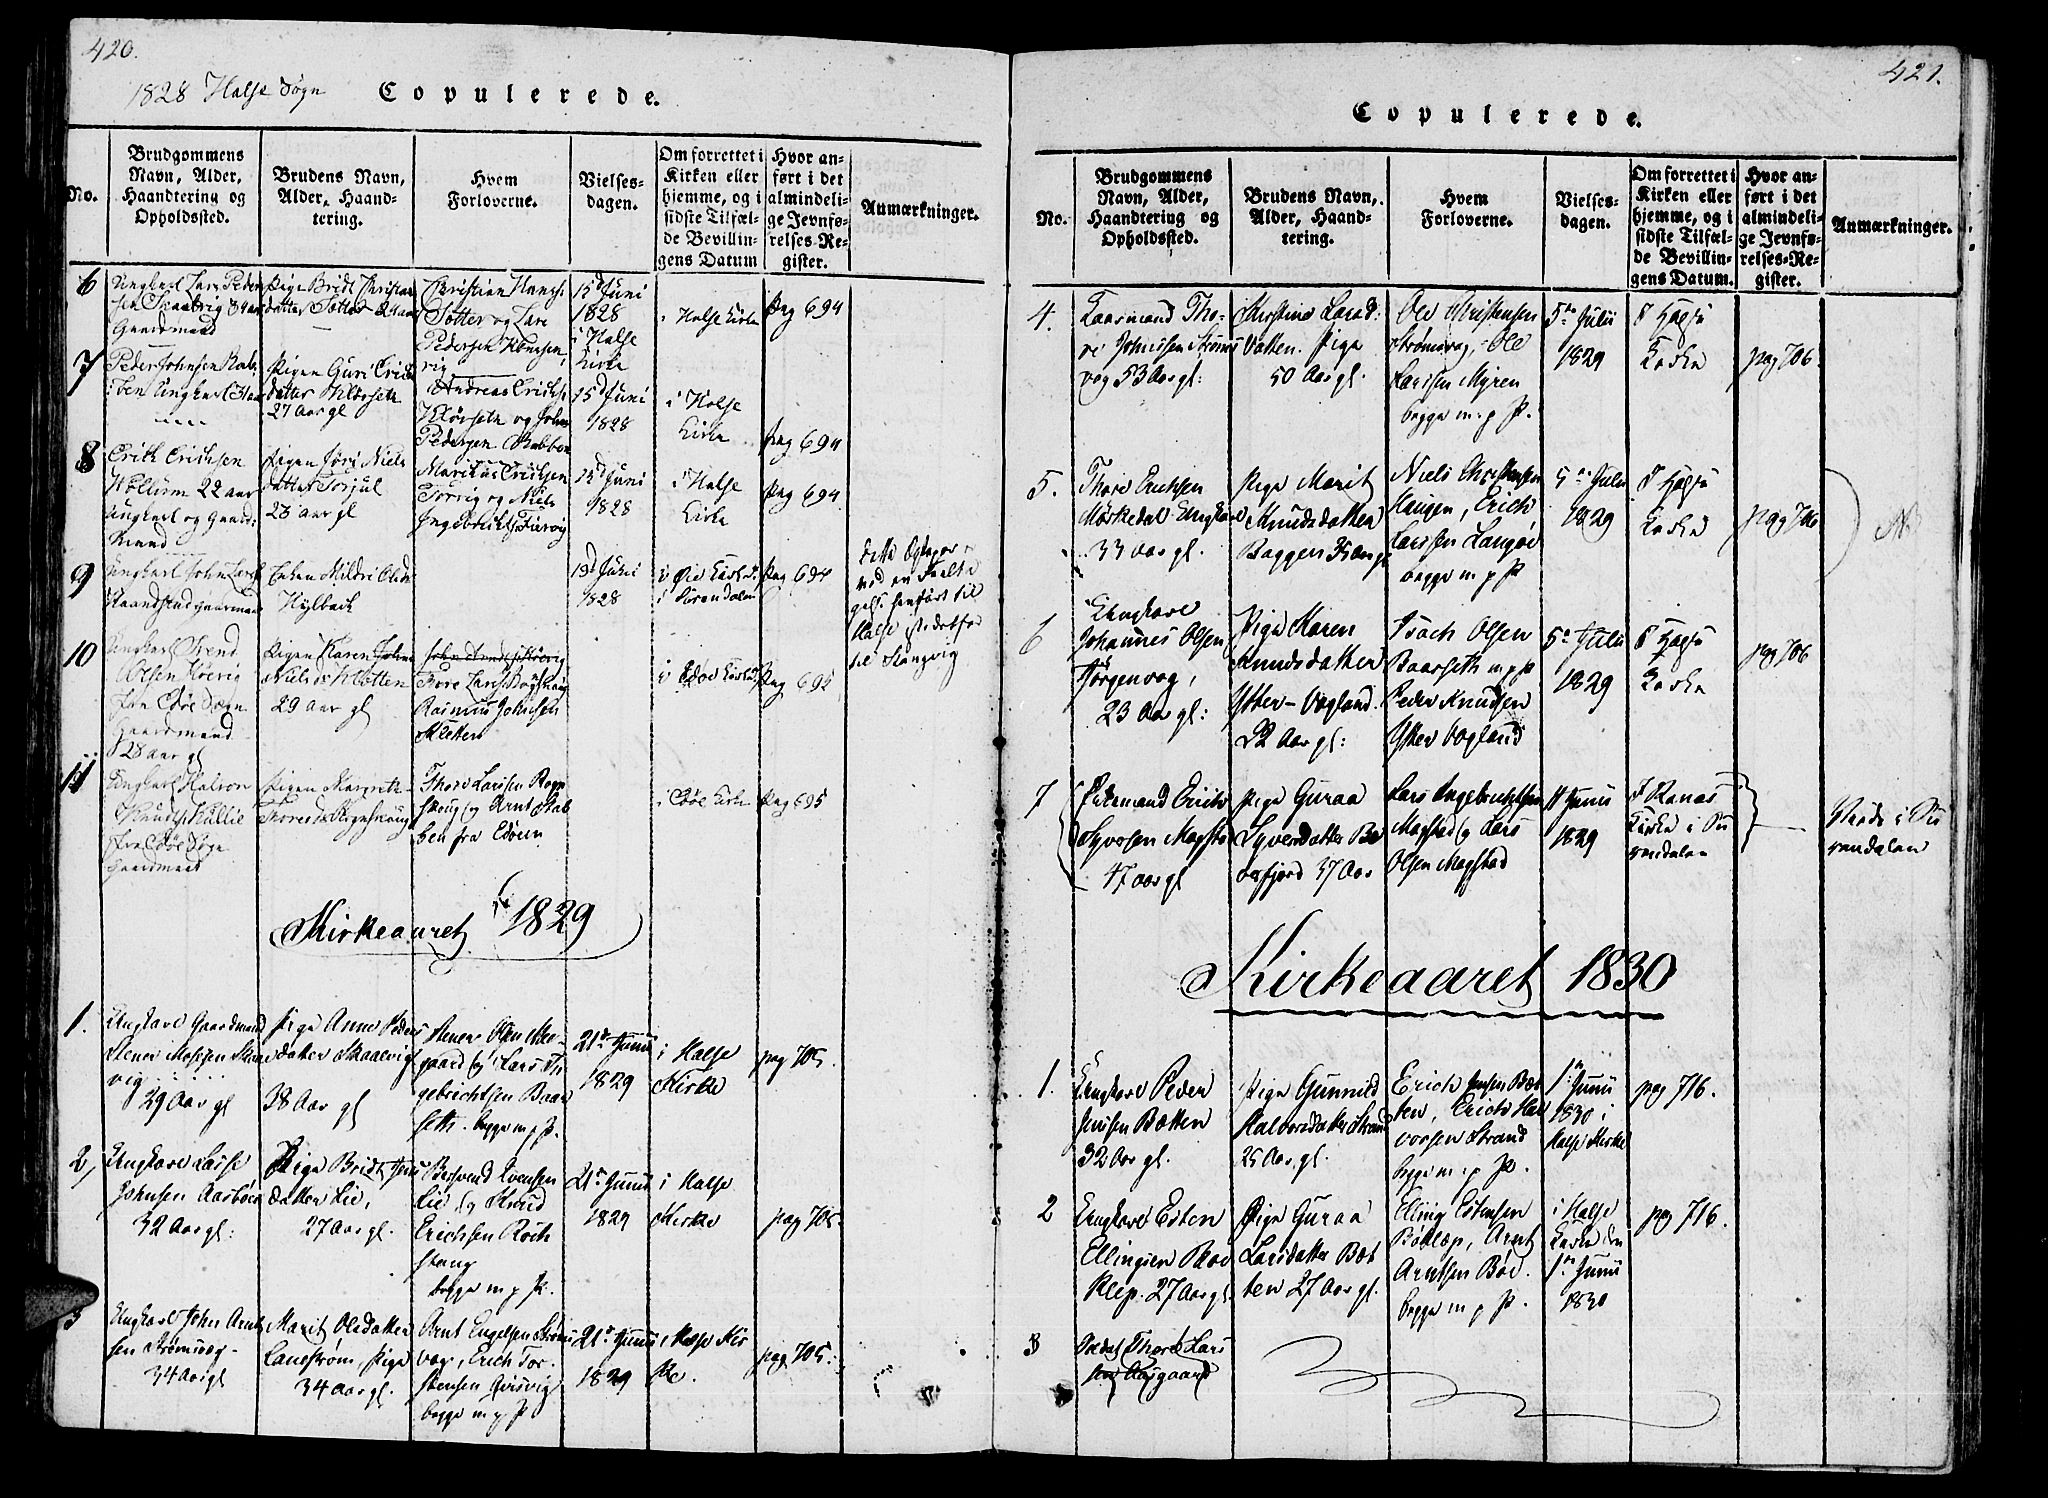 420.
1828 Halse Sogn
Copulerede.
No.
Brudgommens Navn, Alder, Haandtering og Opholdssted.
Brudens Navn, Alder, Haandtering.
Hvem Forloverne.
Vielsesdagen.
Om forrettet i Kirken eller hjemme, og i sidste Tilfælde Bevillingens Datum
Hvor anført i det almindelige Jevnførelses-Register.
Anmærkninger.
6
Ungkarl Lars Peder
sen
Gaardmand
Pige Bridt Christian
datter Sotter 24 aar
Christian Hans
Sotter og Lars
Pedersen
15d Juni
1828
i Halse
Kirke
i Halse Kirke
Pag 694
7
Peder Johnsen Rab
ben Ungkarl
Pigen Guri Erich
datter Kløvseth
27 Aar gl
Andreas Erichs
Kløvseth og John
Pedersen Rabben
15d Juni
1828
i Halse
Kirke
Pag 694
8
Erik Erichsen
22 aar
Ungkarl og Gaard
mand
Pigen Jøri Niels
datter Torjul
28 aar gl
Marikus Erichsen
Torvig og Niels
Ingebrikts Furvig
15d Juni
1828
i Halse
Kirke
Pag 694
9
Ungkarl John Lars
Enken Mildri Olsd
Hylbach
19d Juni
1828
i Øie Kirke
i Surendalen
Pag 694
dette
til Stangvig
10
Ungkarl Trond
Olsen
fra Edøe Sogn
Gaardmand
28 aar gl
Pigen Karen
Nielsd Kletten
29 aar gl
Tore Lars
Rasmus Johnsen
Kletten
i Edøe Kirke
Pag 695
11
Ungkarl Halvor
Knuds
fra Edøe Sogn
Gaardmand
Pigen Margreth
Thore Larsen Rogn
skoug og Arnt Stab
ben fra Edøen
i Edøe Kirke
Pag 695
Kirkeaaret 1829
1.
Ungkarl Gaardmand
Stener Mosissen Skaal
vig
29 Aar gl
Pige Anne Peders
datter Skaalevig
38 Aar gl
Stener Olsen Moe-
gaard og Lars In
gebrichtsen Baar
seth. begge m p P.
21de Junii
1829
i Halse
Kirke
pag 705.
2,
Ungkarl Lasse
Johnsen Aasbøe
32 Aar gl:
Pige Bridt Jens
datter Lie,
27 Aar gl.
Bersvend Evensen
Lie og Knud
Erichsen Roth
stang
begge m p P.
21de Junii
1829
i Halse
Kirke
pag 705.
3
Ungkarl John Arnt
sen Strømsvog-
34 Aar gl
Marit Olsdatter
Lanestrøm, Pige
34 Aar gl.
Arnt Engelsen Strøms
vog, Erich Tor-
stensen
begge m p P.
21de Junii
1829
i Halse Kir
ke.
pag 705.
421.
Copulerede.
No.
Brudgommens Navn, Alder, Haandtering og Opholdssted.
Brudens Navn, Alder, Haandtering.
Hvem Forloverne.
Vielsesdagen.
Om forrettet i Kirken eller hjemme, og i sidste Tilfælde Bevillingens Datum.
Hvor anført i det almindelige Jevnførelses-Register.
Anmærkninger.
4.
Tho-
re Johnssen Strøms
vog 53 Aar gl:
Kirstina Larsd:
Vatten. Pige
50 Aar gl.
Ole Christensen
Strømsvog, Ole
Larssen Myren
begge m. p P.
5te Julii
1829
I Halse
Kirke
pag 706.
5.
Thore Erichsen
Mørkedal Ungkarl
33 Aar gl.
Pige Marit
Knudsdatter
Baggen
Niels Christensen
Haugen, Erich
Larssen Langøe
begge m p P
5te Julii
1829
I Halse
Kirke
pag 706
6
Ungkarl
Johannes Olsen
Jørgenvog,
23 Aar gl:
Pige Karen
Knudsdatter
Ytter-Vogland.
22 Aar gl:
Isach Olsen
Baarseth m p P
Peder Knudsen
Ytter Vogland
5te Julii
1829
I Halse
Kirke
pag 706
7
Enkemand Erich
Syversen Magstad
47 aar gl
Pige Guraa
Syversdatter Bø
verfjord 37 Aar
Lars Ingebrichtsen
Magstad og Lars
Olsen Magstad
11 Junii
1829
I Ranes
Kirke i Su
rendalen
Viede i Su
rendalen
Kirkeaaret 1830
1.
Ungkarl Peder
Jensen Bætten
32 Aar gl.
Pige Gunnild
Halvorsdatter Strand
25 Aar gl.
Erich Jensen Bæt
ten, Erich Hal
vorsen Strand
begge m. p P.
1ste Junii
1830 i
Halse Kirke
pag 716.
2
Ungkarl Esten
Ellingsen Boe
klep. 27 Aar gl.
Pige Guraa
Larsdatter Bæt
ten 27 Aar gl.
Elling Estensen
Bøklep, Arnt
Arntsen Bøe.
begge m p P.
i Halse
Kirke den
1ste Junii
1830
pag 716.
3
Soldat Thore Lars
sen Aasgaard